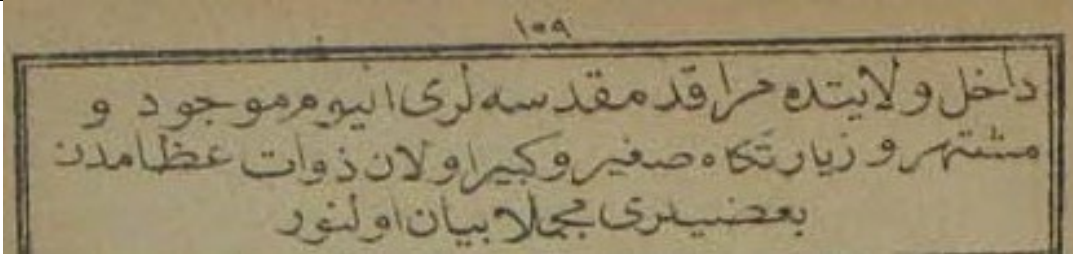 ١٠٩
داخل ولايتده مراقد مقدسه لری اليوم موجود و
مشتهر و زيارتكاه صغير وكبير اولان ذوات عظامدن
بعضيلری مجملا بيان اولنور